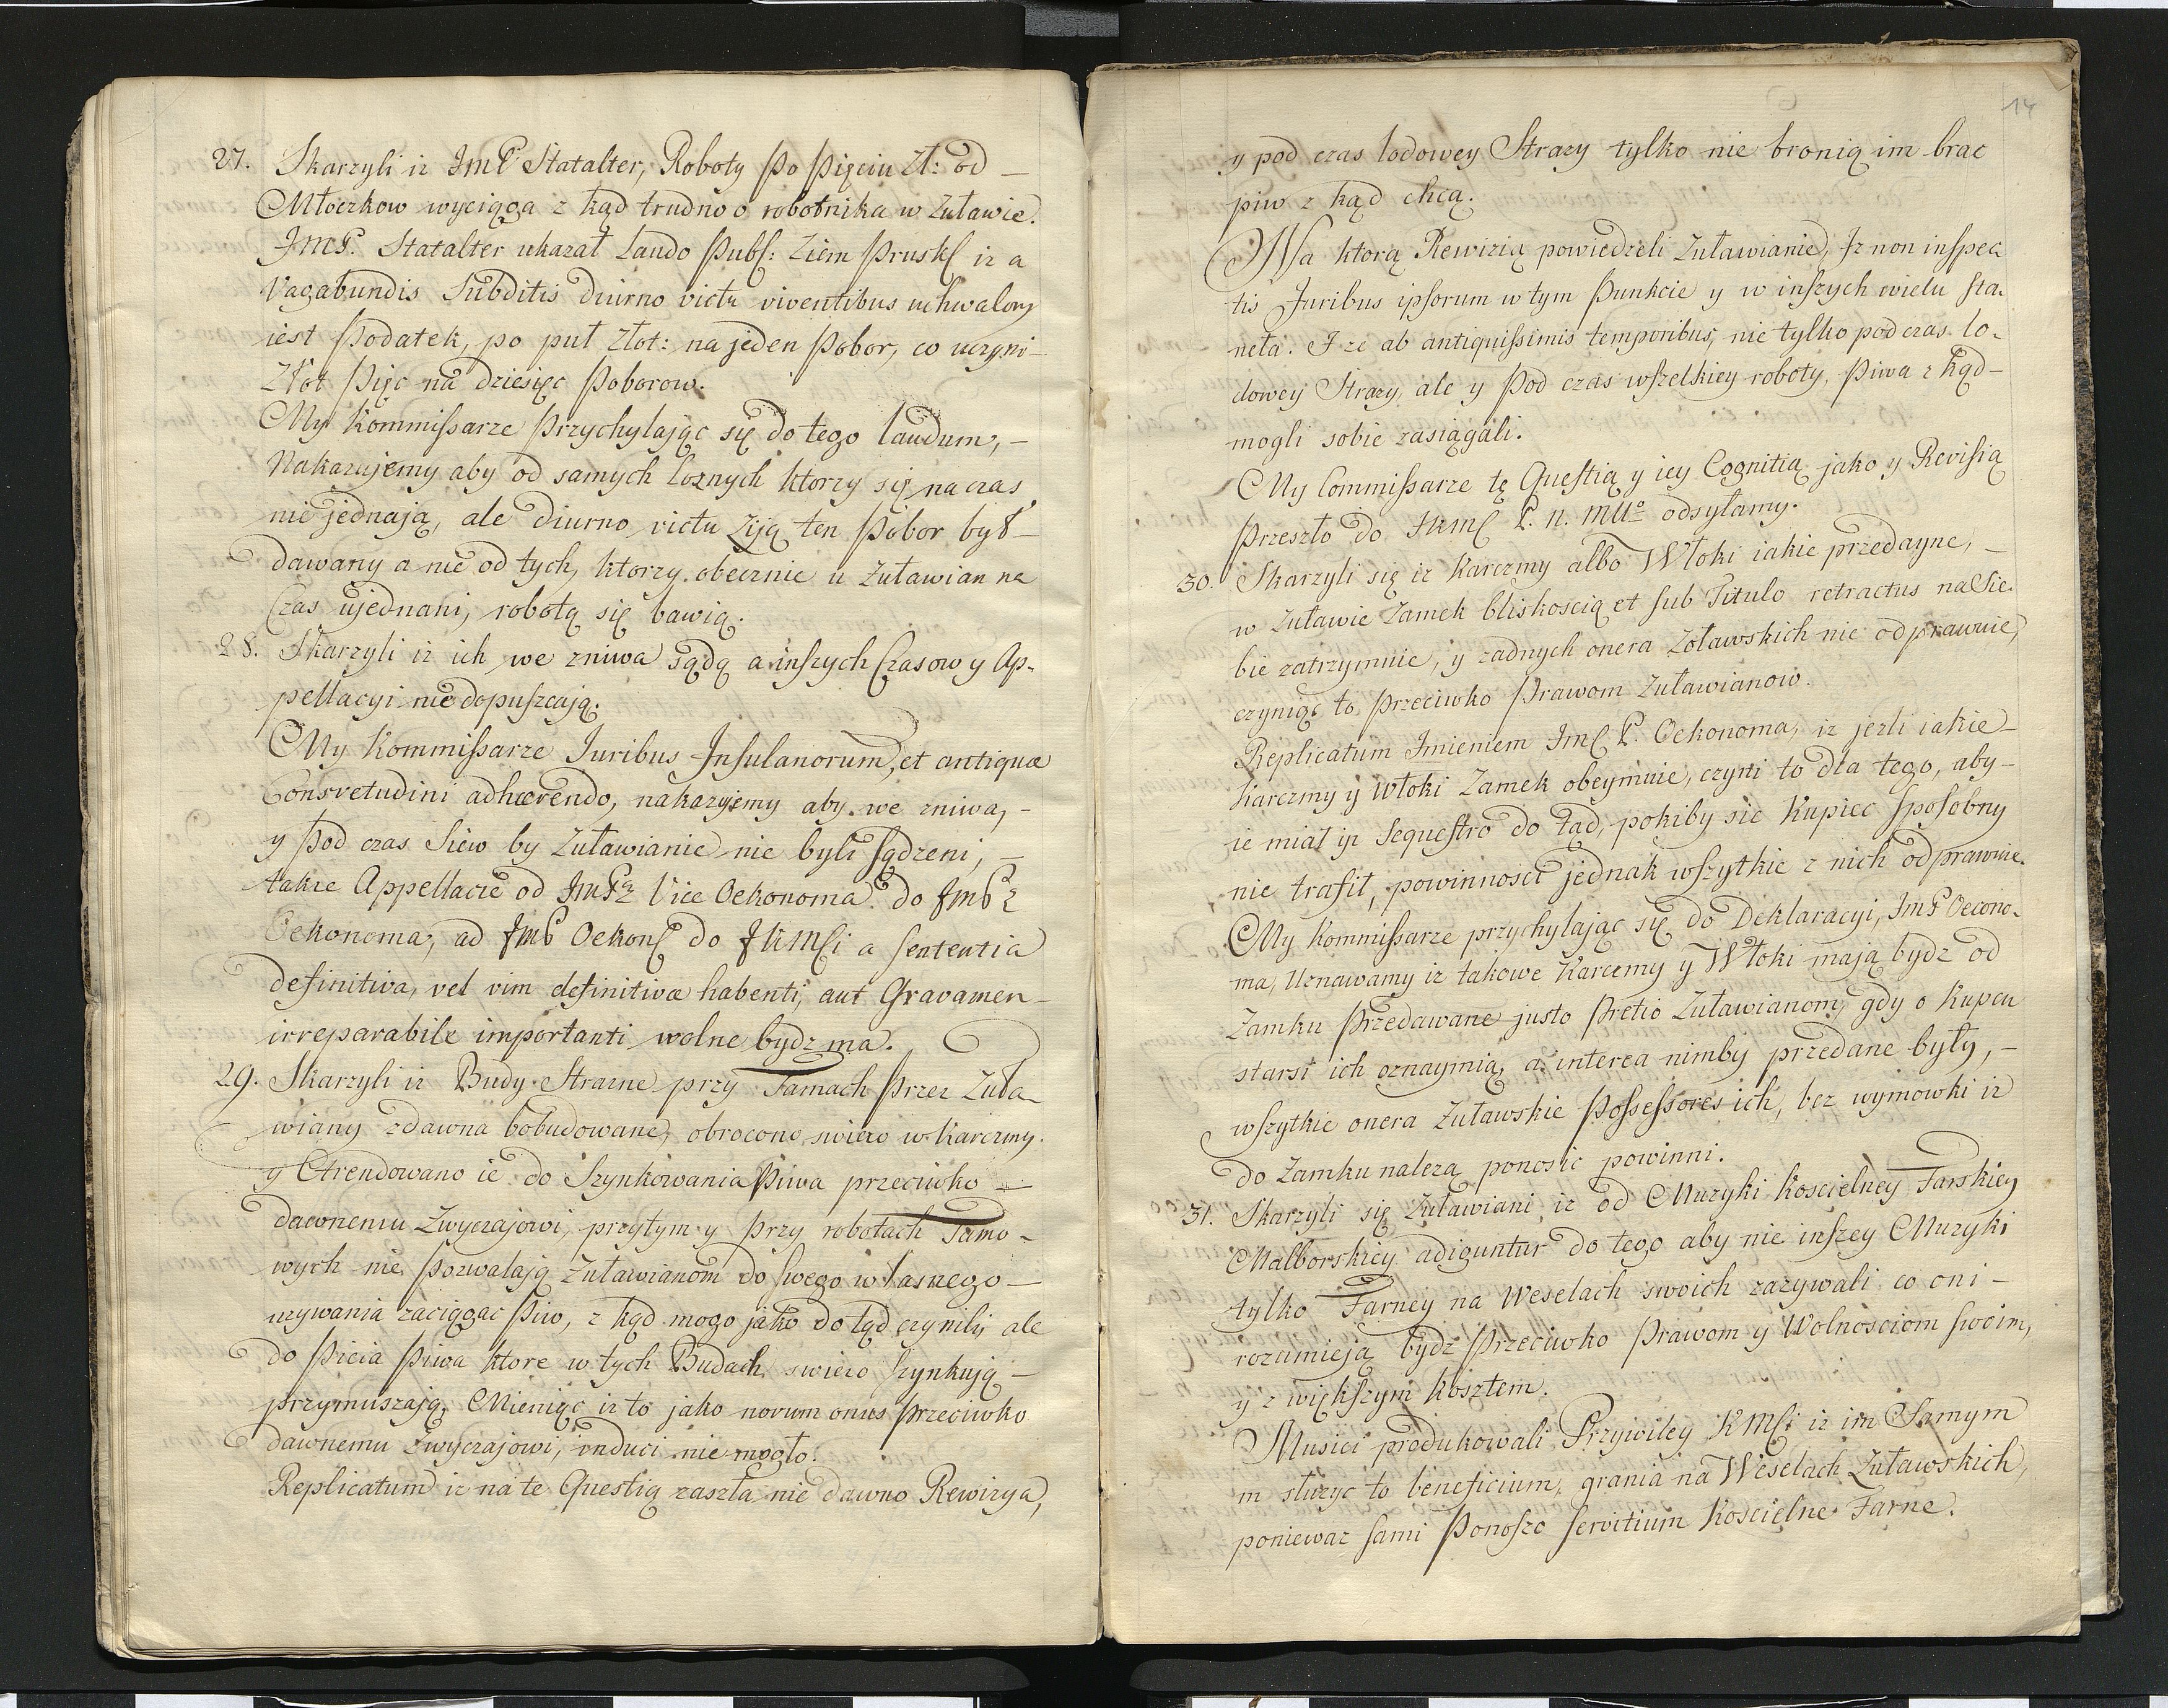 27. Skarzyli iz JmP Statalter, Roboty po pięciu Zł: od —
Młoczkow wyciąga z kąd trudno o robotnika w Zuławie.
JMP. Statalter ukazał Laudo Publ: Ziem Prusk: iz a
Vagabundis Subditis diurno victu viventibus uchwalony
iest Podatek, po puł Złot: na jeden Pobor, co uczyni —
Złot Pięc na dziesięc Poborow.
My Kommissarze przychylając się do tego laudum, —
Nakazujemy aby od samych Loznych ktorzy się na czas
nie jednają, ale diurno victu zyją ten Pobor był —
dawany a nie od tych, ktorzy obecznie u Zuławian na
Czas ujednani, robotą się bawią.
28. Skarzyli iz ich we zniwa sądą a inszych Czasow y Ap-
pellacyi nie dopuszcają.
My Kommissarze Juribus Insulanorum, et antiquæ
Consvetudini adhærendo, nakazyjemy aby we zniwa, —
y pod czas Siew by Zuławianie nie byli sądzeni, —
takze Appellacie od JmPa Vice Oekonoma do JmPa
Oekonoma, ad JmP Oekon do JKMci a sententia
definitiva, vel vim definitivæ habenti, aut Gravamen —
irreparabile importanti wolne bydz ma.
29. Skarzyli iz Budy Strazne przy Tamach przez Zuła-
wiany zdawna bobudowane, obrocono swiezo w Karczmy
y Arendowano ie do Szynkowania Piwa przeciwko —
dawnemu Zwyczajowi, przytym y przy robotach Tamo-
wych nie pozwalają Zuławianom do swego własnego —
uzywania zaciągac Piw, z kąd mogo jako do tąd czynili, ale
do Picia Piwa ktore w tych Budach swiezo szynkują —
przymuszają, Mieniąc iz to jako novum onus przeciwko
dawnemu Zwyczajowi, induci nie mogło.
Replicatum iz na te Questią zaszła nie dawno Rewizya,
14
y pod czas lodowey Strazy tylko nie bronią im brac
piw z kąd chcą.
Na ktorą Rewizią powiedzeli Zuławianie, Iz non inspec
tis Juribus ipsorum w tym Punkcie y w inszych wielu sta-
neła. I ze ab antiquissimis temporibus, nie tylko pod czas lo-
dowey Strazy, ale y Pod czas wszelkiey roboty, Piwa z kąd —
mogli sobie zasiągali.
My Commissarze tę Questią y iey Cognitią jako y Revisią
Przeszło do JKMc P. N. Mgo odsyłamy.
30. Skarzyli się iz Karczmy albo Włoki iakie przedayne, —
w Zuławie Zamek bliskoscią et sub Titulo retractus na Sie-
bie zatrzymuie, y zadnych onera Zoławskich nie odprawuie,
czyniąc to przeciwko Prawom Zuławianow.
Replicatum Imieniem Jmc P. Oekonoma, iz jezli iakie —
Karczmy y Włoki Zamek obeymuie, czyni to dla tego, aby —
ie miał in Sequestro do tąd, pokiby sie Kupiec sposobny
nie trafił, powinnosci jednak wszytkie z nich odprawuie.
My Kommissarze przychylając się do Deklaracyi, JmP Oecono-
ma, Uznawamy iz takowe Karczmy y Włoki mają bydz od
Zamku Przedawane justo Pretio Zuławianom, gdy o Kupcu
starsi ich oznaymią, a interea nimby przedane były, —
wszytkie onera Zuławskie Possessores ich, bez wymowki iz
do Zamku nalezą ponosic powinni.
31. Skarzyli się Zuławiani iz od Muzyki Koscielney Farskiey
Malborskiey adiguntur do tego aby nie inszey Muzyki
tylko Farney na Weselach swoich zazywali co oni —
rozumieją bydz przeciwko Prawom y Wolnosciom swoim,
y z większym kosztem.
Musici produkowali Przywiley KMci iz im Samym
m słuzyc to beneficium, grania na Weselach Zuławskich,
poniewaz sami Ponoszo servitium Koscielne Farne.